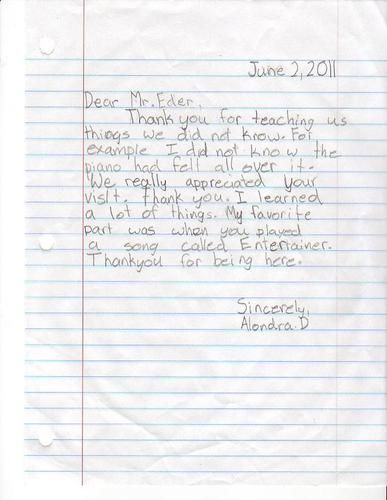 June 2, 2011
Dear Mr. Eder,
Thank you for teaching us
things we did not know. For
example I did not know the
piano had felt all over it.
We really appreciated your
visit. Thank you. I learned
a lot of things. My favorite
part was when you played
a song called Entertainer.
Thankyou for being here.
Sincerely,
Alondra.D